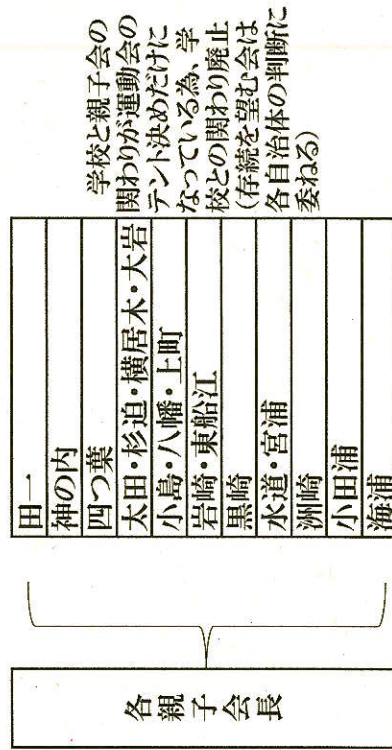 各親子会長
田一
神の内
四つ葉
太田・杉迫・横居木・大岩
小島・八幡・上町
岩崎・東船江
黒崎
水道・宮浦
洲崎
小田浦
海浦
学校と親子会の
関わりが運動会の
テント決めだけに
なっている為、学
校との関わり廃止
(存続を望む会は
各自治体の判断に
委ねる)